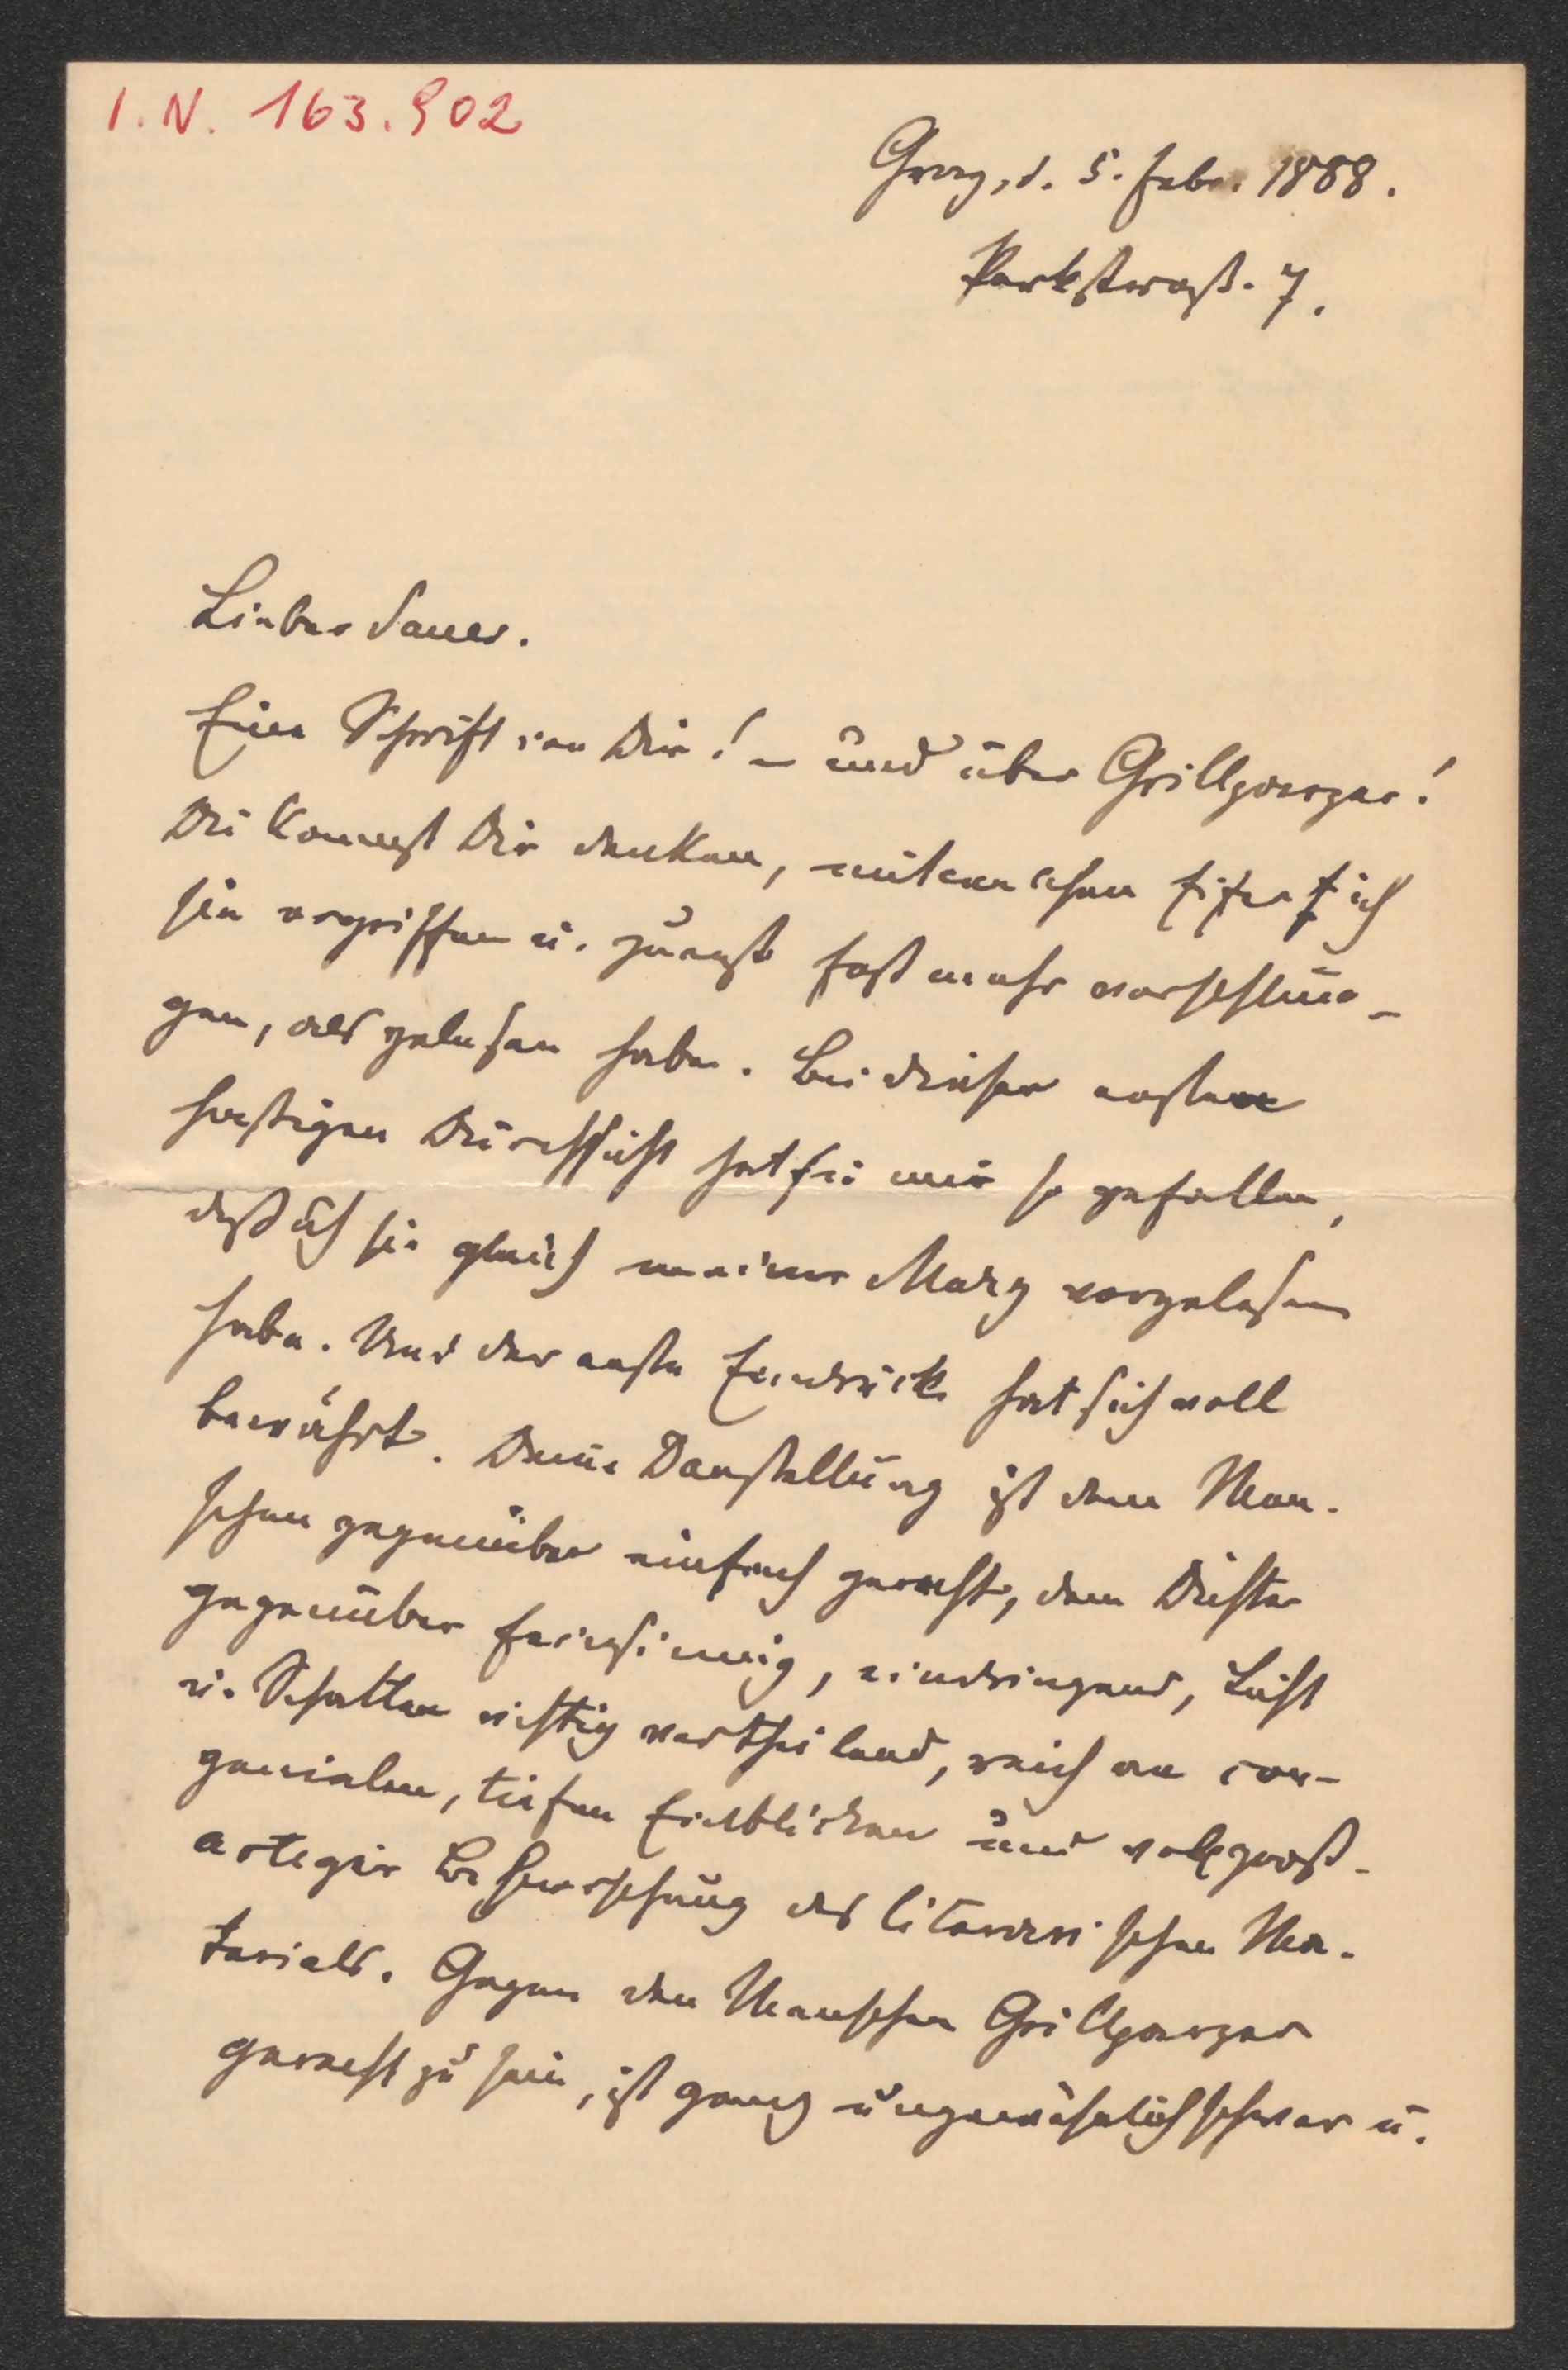 I. N. 163.902
Graz, d. 5. Febr. 1888.
Parkstraß. 7.
Lieber Sauer.
Eine Schrift von Dir! – und über Grillparzer!
Du kannst Dir denken, mit welchem Eifer ich
sie ergriffen u. zuerst fast mehr verschlun-
gen, als gelesen habe. Bei dieser ersten
hastigen Durchsicht hat sie mir so gefallen,
daß ich sie gleich meiner Marg vorgelesen
habe. Und der erste Eindruck hat sich voll
bewährt. Deine Darstellung ist dem Men-
schen gegenüber einfach gerecht, dem Dichter
gegenüber feinsinnig, eindringend, Licht
u. Schatten richtig vertheilend, reich an con-
genialen, tiefen Einblicken und voll großt-
artiger Beherrschung des literarischen Ma-
terials. Gegen den Menschen Grillparzer
gerecht zu sein, ist ganz ungewöhnlich schwer u.